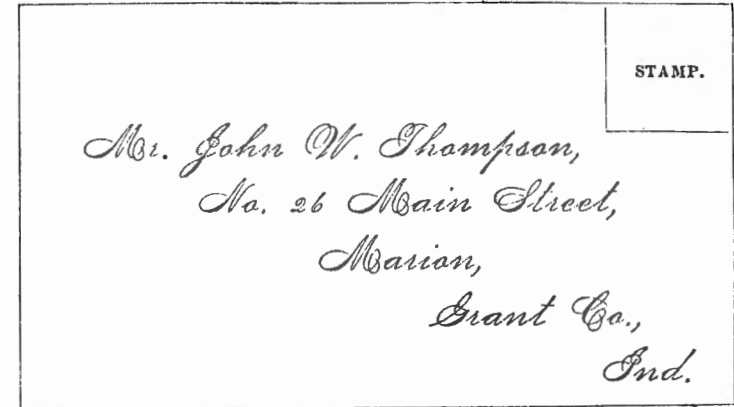 STAMP.
Mr. John W. Thompson,
No. 26 Main Street,
Marion,
Grant Co.,
Ind.